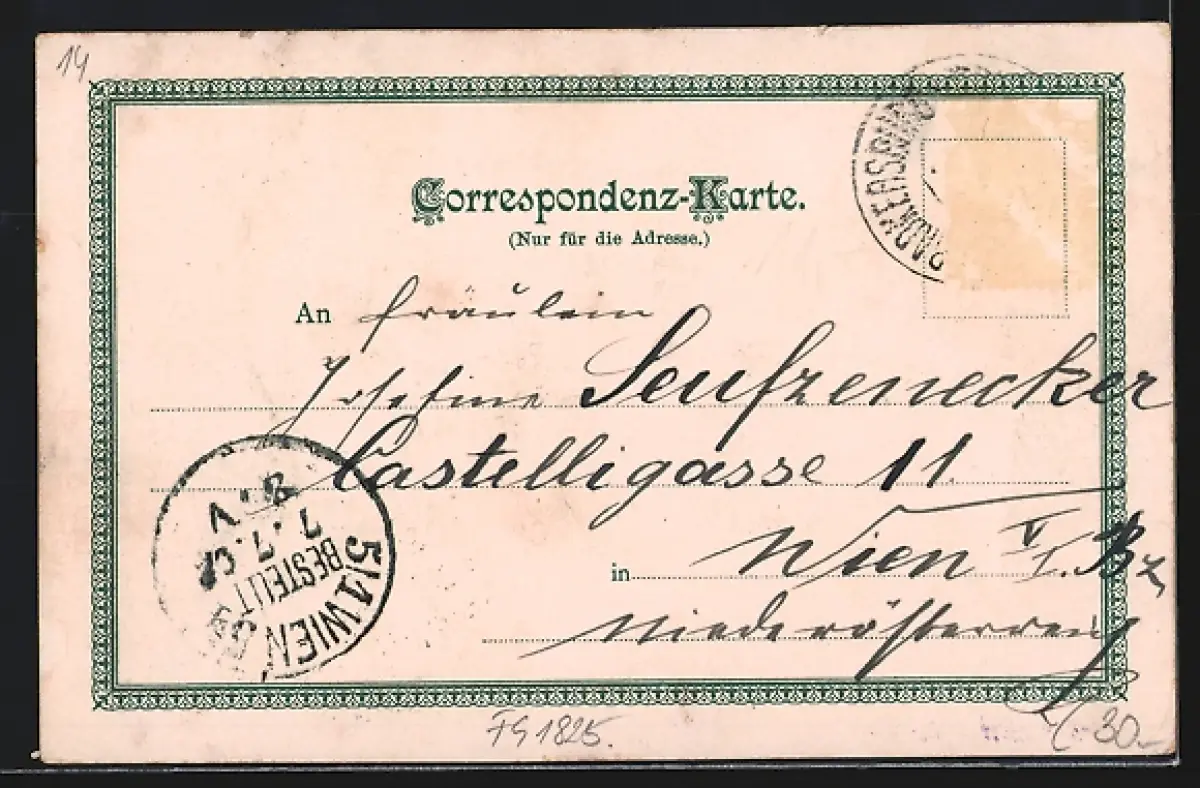 14
RADKERSBURG
Correspondenz-Karte.
(Nur für die Adresse.)
An Fräulein
Josefine Seufzenecker
Castelligasse 11.
in Wien V I. Bz
Niederösterreich
5/1 WIEN
BESTELLT
7. 7.
V
FG 1825.
30.-